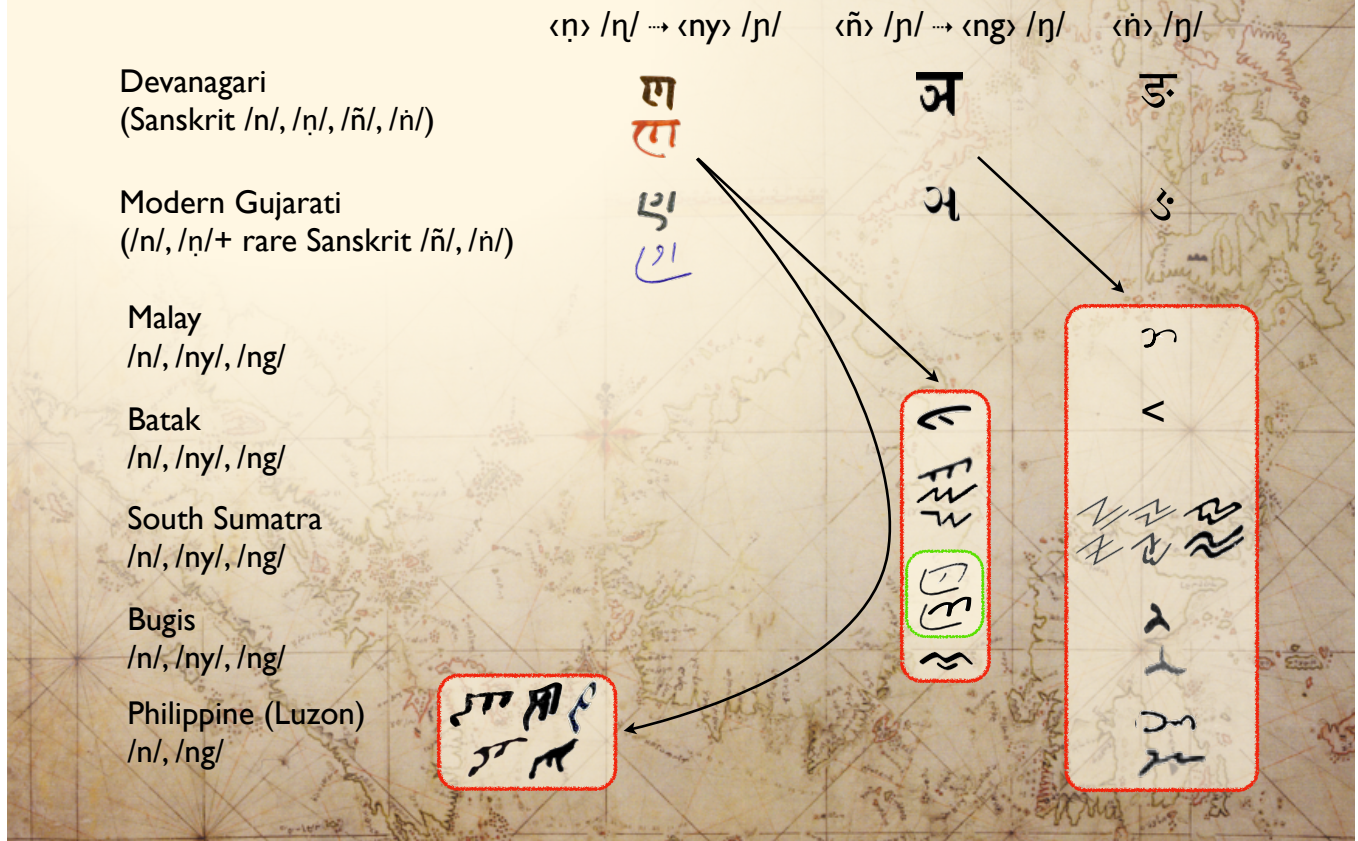 ‹ṇ› /ɳ/ ⇢ ‹ny› /ɲ/ ‹ñ› /ɲ/ ⇢ ‹ng› /ŋ/ ‹ṅ› /ŋ/
Devanagari ण ञ ङ
(Sanskrit /n/, /ṇ/, /ñ/, /ṅ/) ण
Modern Gujarati ણ ઞ ઙ
(/n/, /ṇ/+ rare Sanskrit /ñ/, /ṅ/) ણ
Malay
/n/, /ny/, /ng/
Batak
/n/, /ny/, /ng/
South Sumatra
/n/, /ny/, /ng/
Bugis
/n/, /ny/, /ng/
Philippine (Luzon)
/n/, /ng/